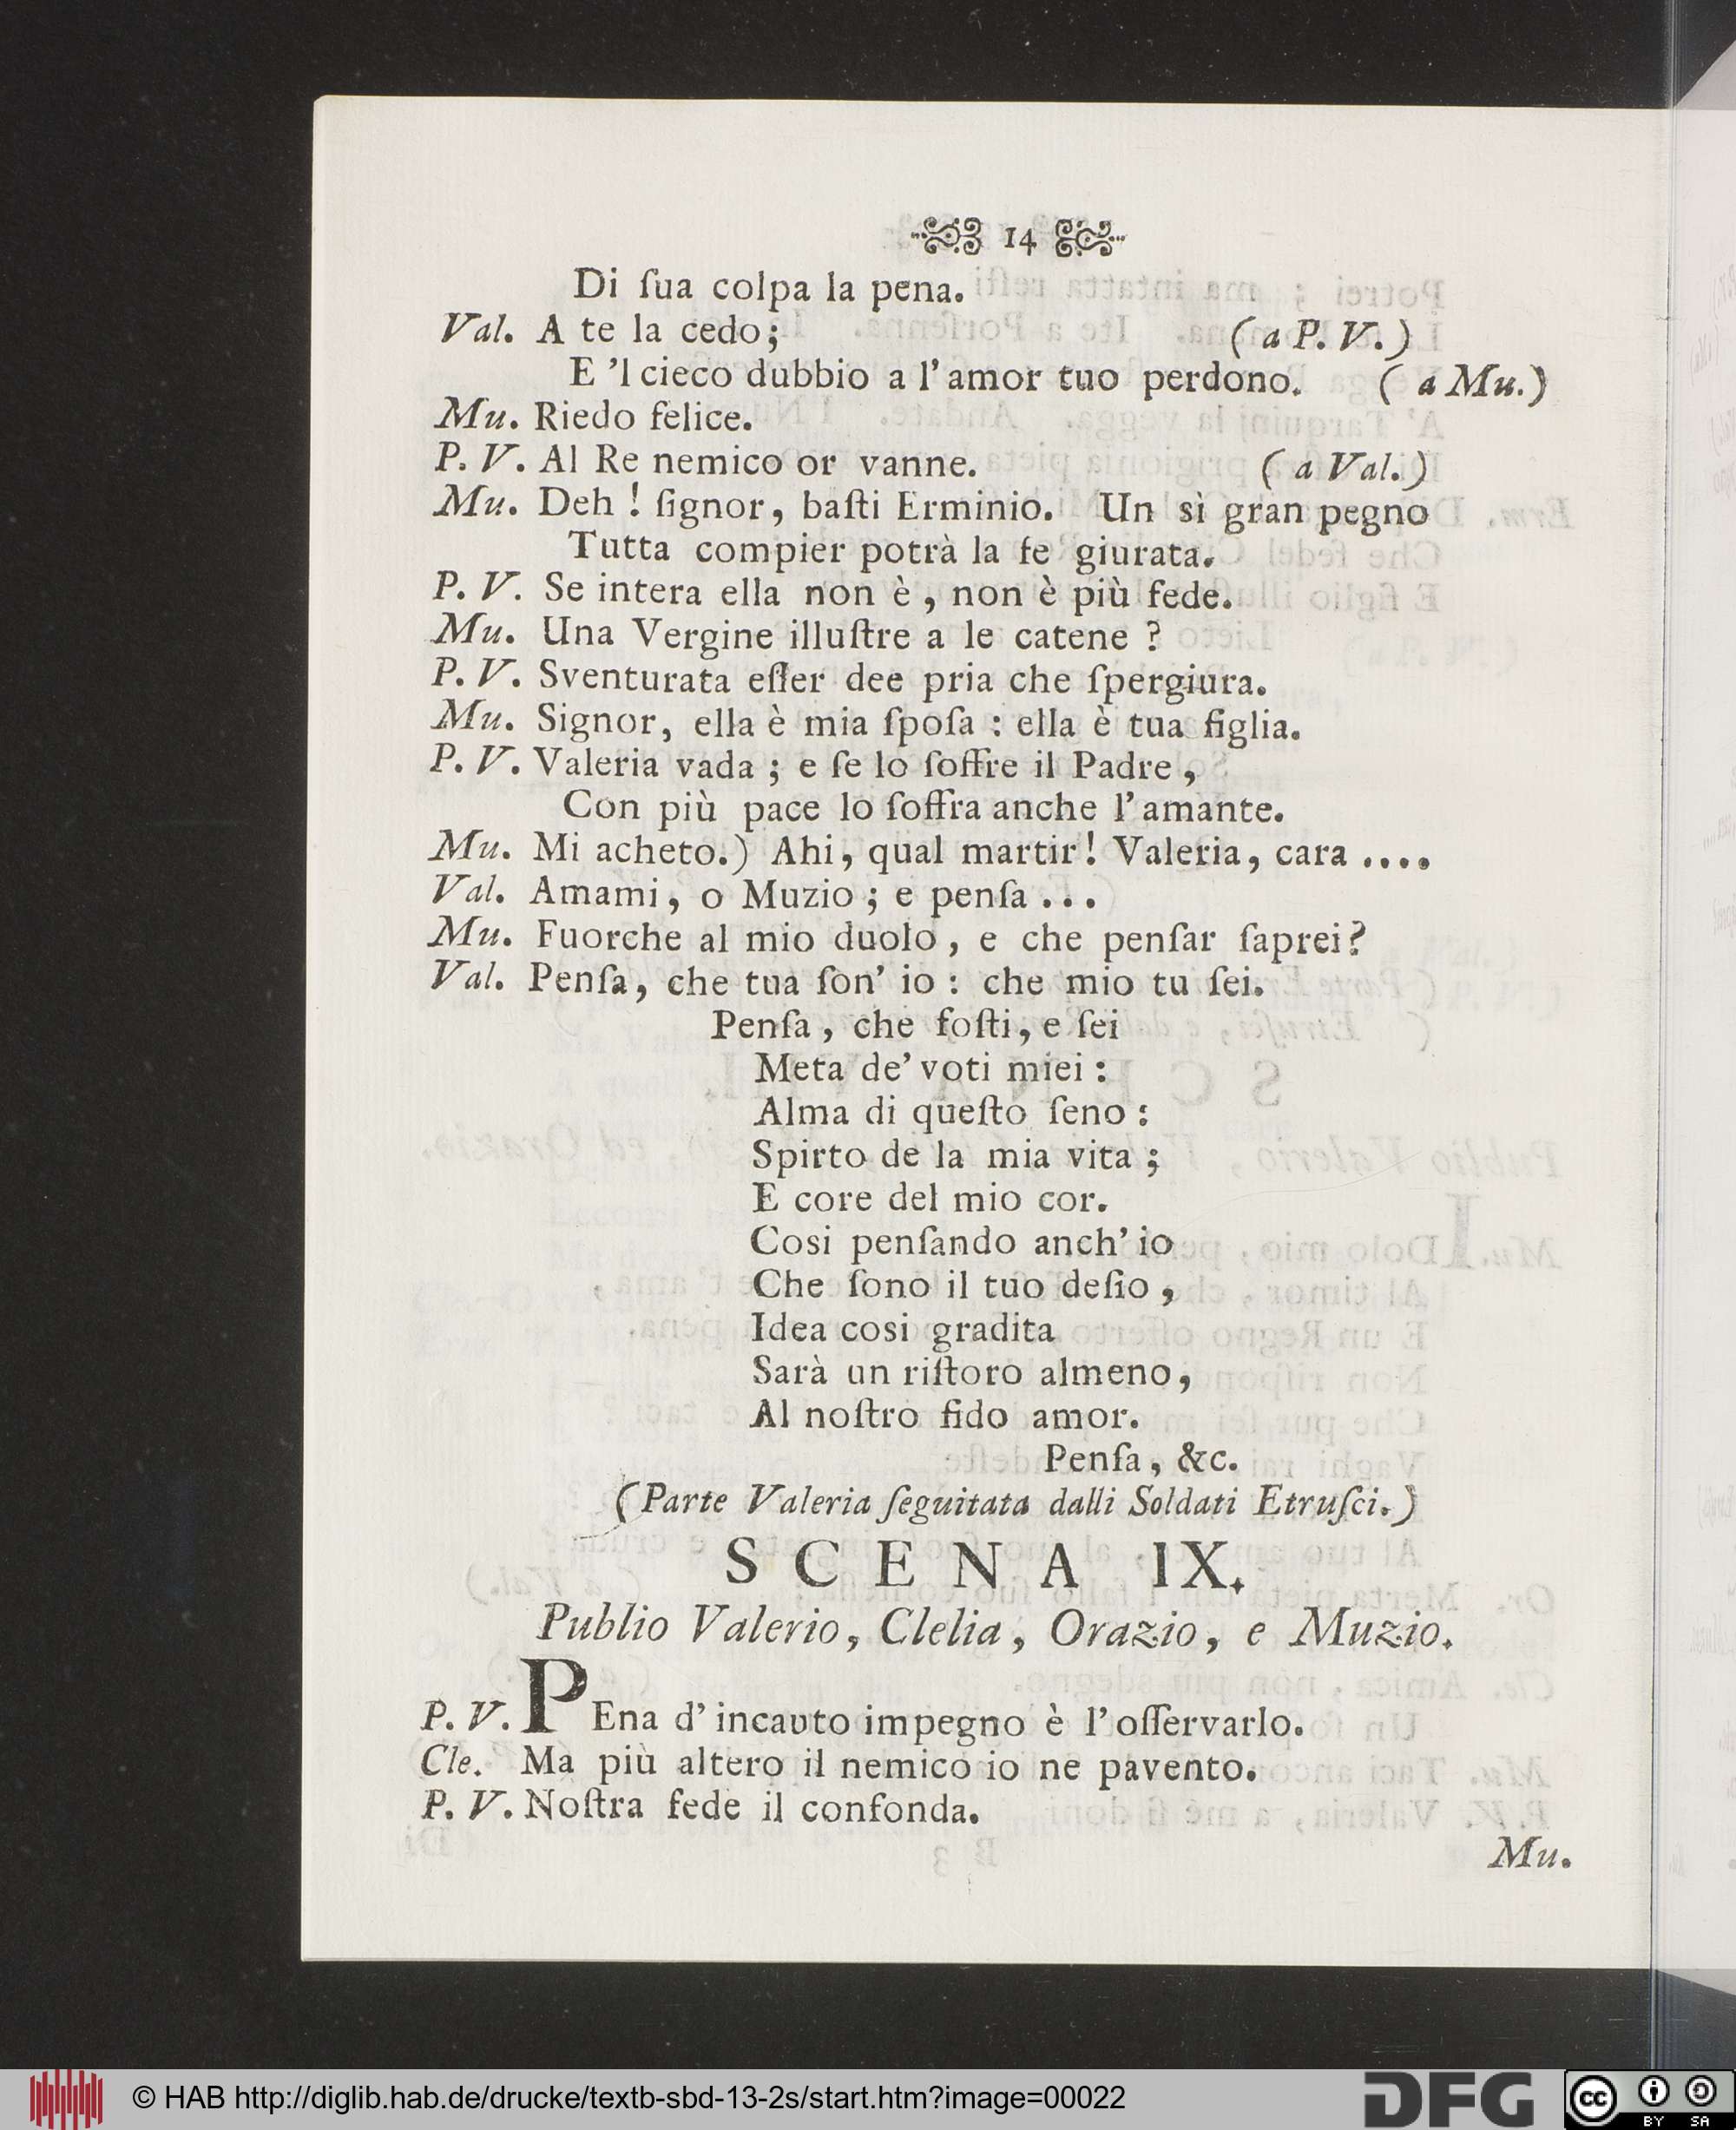 14
Di ſua colpa la pena.
Val. A te la cedo; (a P. V.)
E 'l cieco dubbio a l'amor tuo perdono. (a Mu.)
Mu. Riedo felice.
P. V. Al Re nemico or vanne. (a Val.)
Mu. Deh! ſignor, baſti Erminio. Un sì gran pegno
Tutta compier potrà la fe giurata.
P. V. Se intera ella non è, non è più fede.
Mu. Una Vergine illuſtre a le catene?
P. V. Sventurata eſſer dee pria che ſpergiura.
Mu. Signor, ella è mia ſpoſa: ella è tua figlia.
P. V. Valeria vada; e ſe lo ſoffre il Padre,
Con più pace lo ſoffra anche l'amante.
Mu. Mi acheto.) Ahi, qual martir! Valeria, cara ....
Val. Amami, o Muzio; e penſa ...
Mu. Fuorche al mio duolo, e che penſar ſaprei?
Val. Penſa, che tua ſon' io: che mio tu ſei.
Penſa, che foſti, e ſei
Meta de' voti miei:
Alma di queſto ſeno:
Spirto de la mia vita;
E core del mio cor.
Cosi penſando anch' io
Che ſono il tuo deſio,
Idea cosi gradita
Sarà un riſtoro almeno,
Al noſtro fido amor.
Penſa, &c.
(Parte Valeria ſeguitata dalli Soldati Etruſci.)
SCENA IX.
Publio Valerio, Clelia, Orazio, e Muzio.
P. V. PEna d'incauto impegno è l'oſſervarlo.
Cle. Ma più altero il nemico io ne pavento.
P. V. Noſtra fede il confonda.
Mu.
© HAB http://diglib.hab.de/drucke/textb-sbd-13-2s/start.htm?image=00022
DFG
cc BY SA